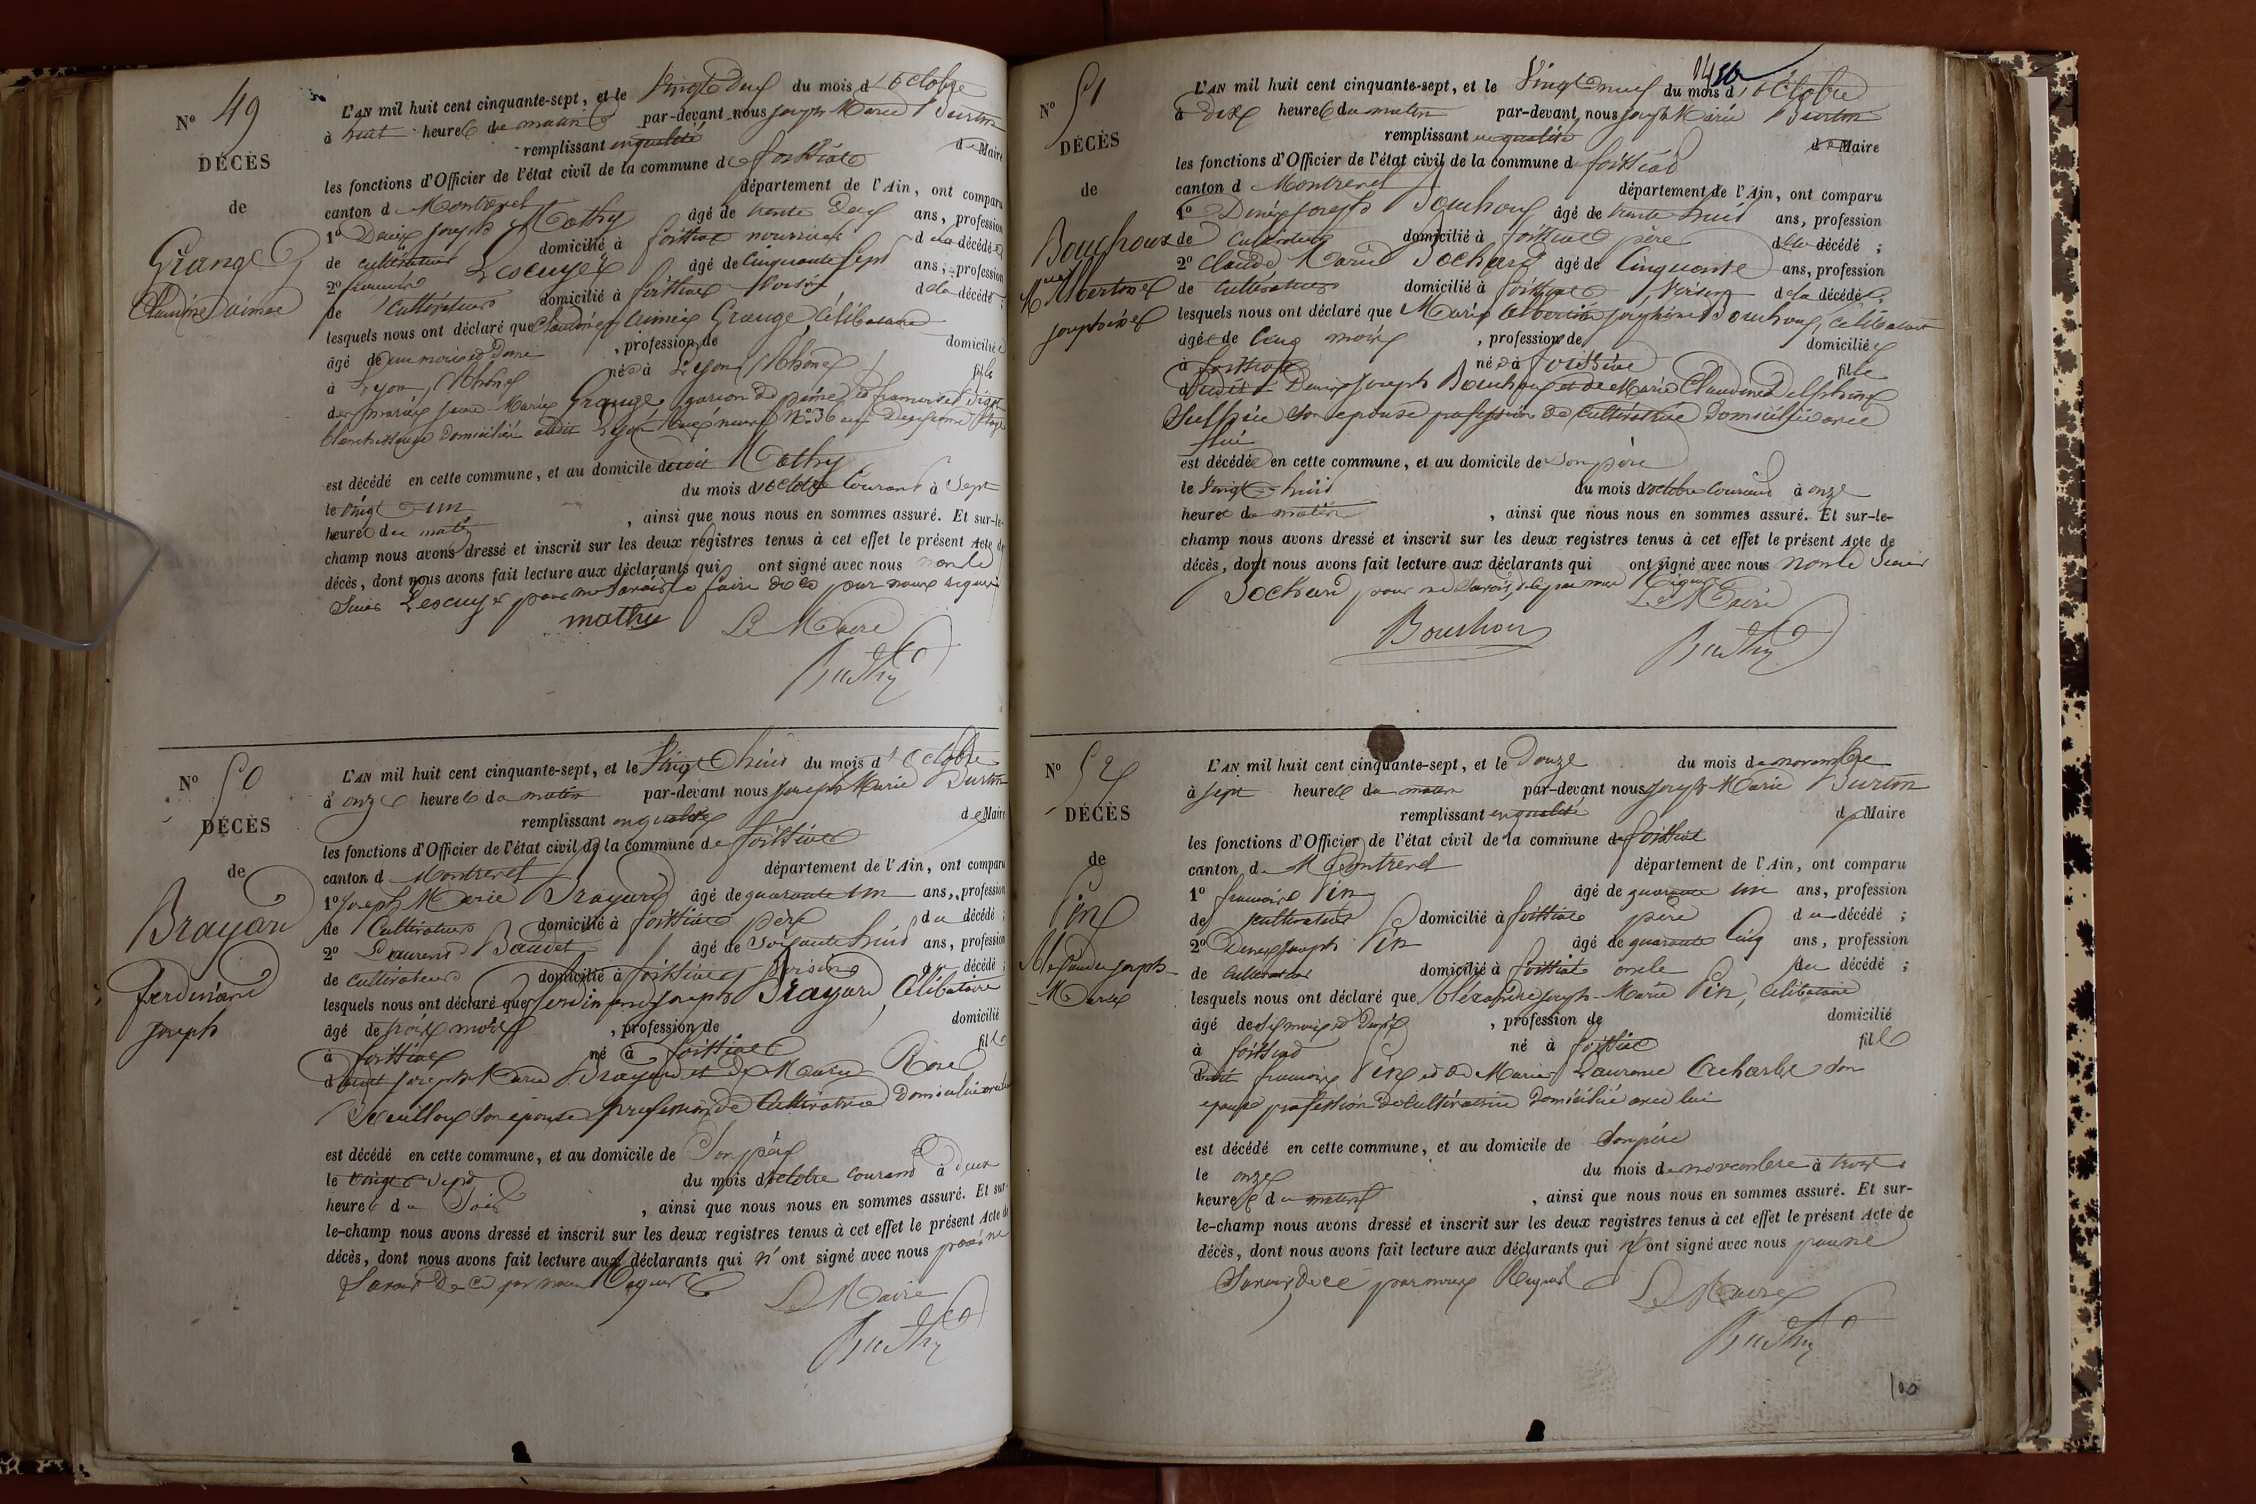 N° 49
DÉCÈS
de
Grange
Claudine aimée
L'AN mil huit cent cinquante-sept, et le Vingt Deux du mois d'Octobre
à huit heures du matin par-devant nous Joseph Marie Burtin
remplissant en qualité de Maire
les fonctions d'Officier de l'état civil de la commune de foissiat
canton de Montrevel département de l'Ain, ont comparu
1° Denis Joseph Mathy âgé de trente Deux ans, profession
de cultivateur domicilié à foissiat nourricier de la décédée
2° françois Lescuyer âgé de Cinquante Sept ans, profession
de Cultivateur domicilié à foissiat Voisin de la décédée ;
lesquels nous ont déclaré que Claudine Aimée Grange, Célibataire
âgée de un mois et Demi , profession de domiciliée
à Lyon, Rhône née à Lyon (Rhône) fille
des mariés Jean Marie Grange garçon de peine, et françoise
blanchisseuse Domiciliés audit Lyon Rue neuve N° 36 au Deuxième Etage
est décédé en cette commune, et au domicile dudit Mathy
le Vingt un du mois d'octobre Courant à Sept
heures du matin , ainsi que nous nous en sommes assuré. Et sur-le-
champ nous avons dressé et inscrit sur les deux registres tenus à cet effet le présent Acte de
décès, dont nous avons fait lecture aux déclarants qui ont signé avec nous non le
Sieur Lescuyer pour ne Savoir le faire de ce par nous requis
mathy Le Maire
Burtin
N° 50
DÉCÈS
de
Brayard
ferdinand
Joseph
L'AN mil huit cent cinquante-sept, et le Vingt huit du mois d'Octobre
à onze heures du matin par-devant nous Joseph Marie Burtin
remplissant en qualité de Maire
les fonctions d'Officier de l'état civil de la commune de foissiat
canton de Montrevel département de l'Ain, ont comparu
1° Joseph Marie Brayard âgé de quarante un ans, profession
de Cultivateur domicilié à foissiat père du décédé ;
2° Laurent Baudet âgé de Soixante huit ans, profession
de cultivateur domicilié à foissiat Voisin du décédé ;
lesquels nous ont déclaré que ferdinand Joseph Brayard, Célibataire
âgé de trois mois , profession de domicilié
à foissiat né à foissiat fils
dudit Joseph Marie Brayard et de Marie Rose
Neuilloux Son épouse profession de Cultivatrice Domiciliée avec lui
est décédé en cette commune, et au domicile de Son père
le Vingt Sept du mois d'octobre courant à deux
heures du Soir , ainsi que nous nous en sommes assuré. Et sur-
le-champ nous avons dressé et inscrit sur les deux registres tenus à cet effet le présent Acte de
décès, dont nous avons fait lecture aux déclarants qui n'ont signé avec nous pour ne
Savoir De ce par nous Requis
Le Maire
Burtin
N° 51
DÉCÈS
de
Bouchoux
Marie
Albertine
Joséphine
L'AN mil huit cent cinquante-sept, et le Vingt neuf du mois d'Octobre
à Dix heures du matin par-devant nous Joseph Marie Burtin
remplissant en qualité de Maire
les fonctions d'Officier de l'état civil de la commune de foissiat
canton d Montrevel département de l'Ain, ont comparu
1° Denis Joseph Bouchoux âgé de trente huit ans, profession
de Cultivateur domicilié à foissiat père de la décédé ;
2° Claude Marie Sochard âgé de Cinquante ans, profession
de Cultivateur domicilié à foissiat Voisin de la décédée ;
lesquels nous ont déclaré que Marie Albertine Joséphine Bouchoux, célibataire
âgée de Cinq mois , profession de domiciliée
à foissiat née à foissiat fille
dudit Denis Joseph Bouchoux et de Marie Claudine Delphine
Sulpice Son épouse profession de Cultivatrice Domiciliée avec
lui
est décédée en cette commune, et au domicile de Son père
le Vingt huit du mois d'octobre courant à onze
heures du matin , ainsi que nous nous en sommes assuré. Et sur-le-
champ nous avons dressé et inscrit sur les deux registres tenus à cet effet le présent Acte de
décès, dont nous avons fait lecture aux déclarants qui ont signé avec nous non le Sieur
Sochard pour ne Savoir, de ce par nous Requis
Le Maire
Bouchoux
Burtin
N° 52
DÉCÈS
de
Pin
Alexandre Joseph
Marie
L'AN mil huit cent cinquante-sept, et le Douze du mois de novembre
à Sept heures du matin par-devant nous Joseph Marie Burtin
remplissant en qualité de Maire
les fonctions d'Officier de l'état civil de la commune de foissiat
canton de Montrevel département de l'Ain, ont comparu
1° françois Pin âgé de quarante un ans, profession
de cultivateur domicilié à foissiat père du décédé ;
2° Denis Joseph Pin âgé de quarante Cinq ans, profession
de Cultivateur domicilié à foissiat oncle du décédé ;
lesquels nous ont déclaré que Alexandre Joseph Marie Pin, Célibataire
âgé de Six mois et Demi , profession de domicilié
à foissiat né à foissiat fils
dudit françois Pin et de Marie Laurence Cucharbe Son
épouse profession de Cultivatrice Domiciliée avec lui
est décédé en cette commune, et au domicile de Son père
le onze du mois de novembre à trois
heures du matin , ainsi que nous nous en sommes assuré. Et sur-
le-champ nous avons dressé et inscrit sur les deux registres tenus à cet effet le présent Acte de
décès, dont nous avons fait lecture aux déclarants qui n'ont signé avec nous pour ne
Savoir de ce par nous Requis
Le Maire
Burtin
100